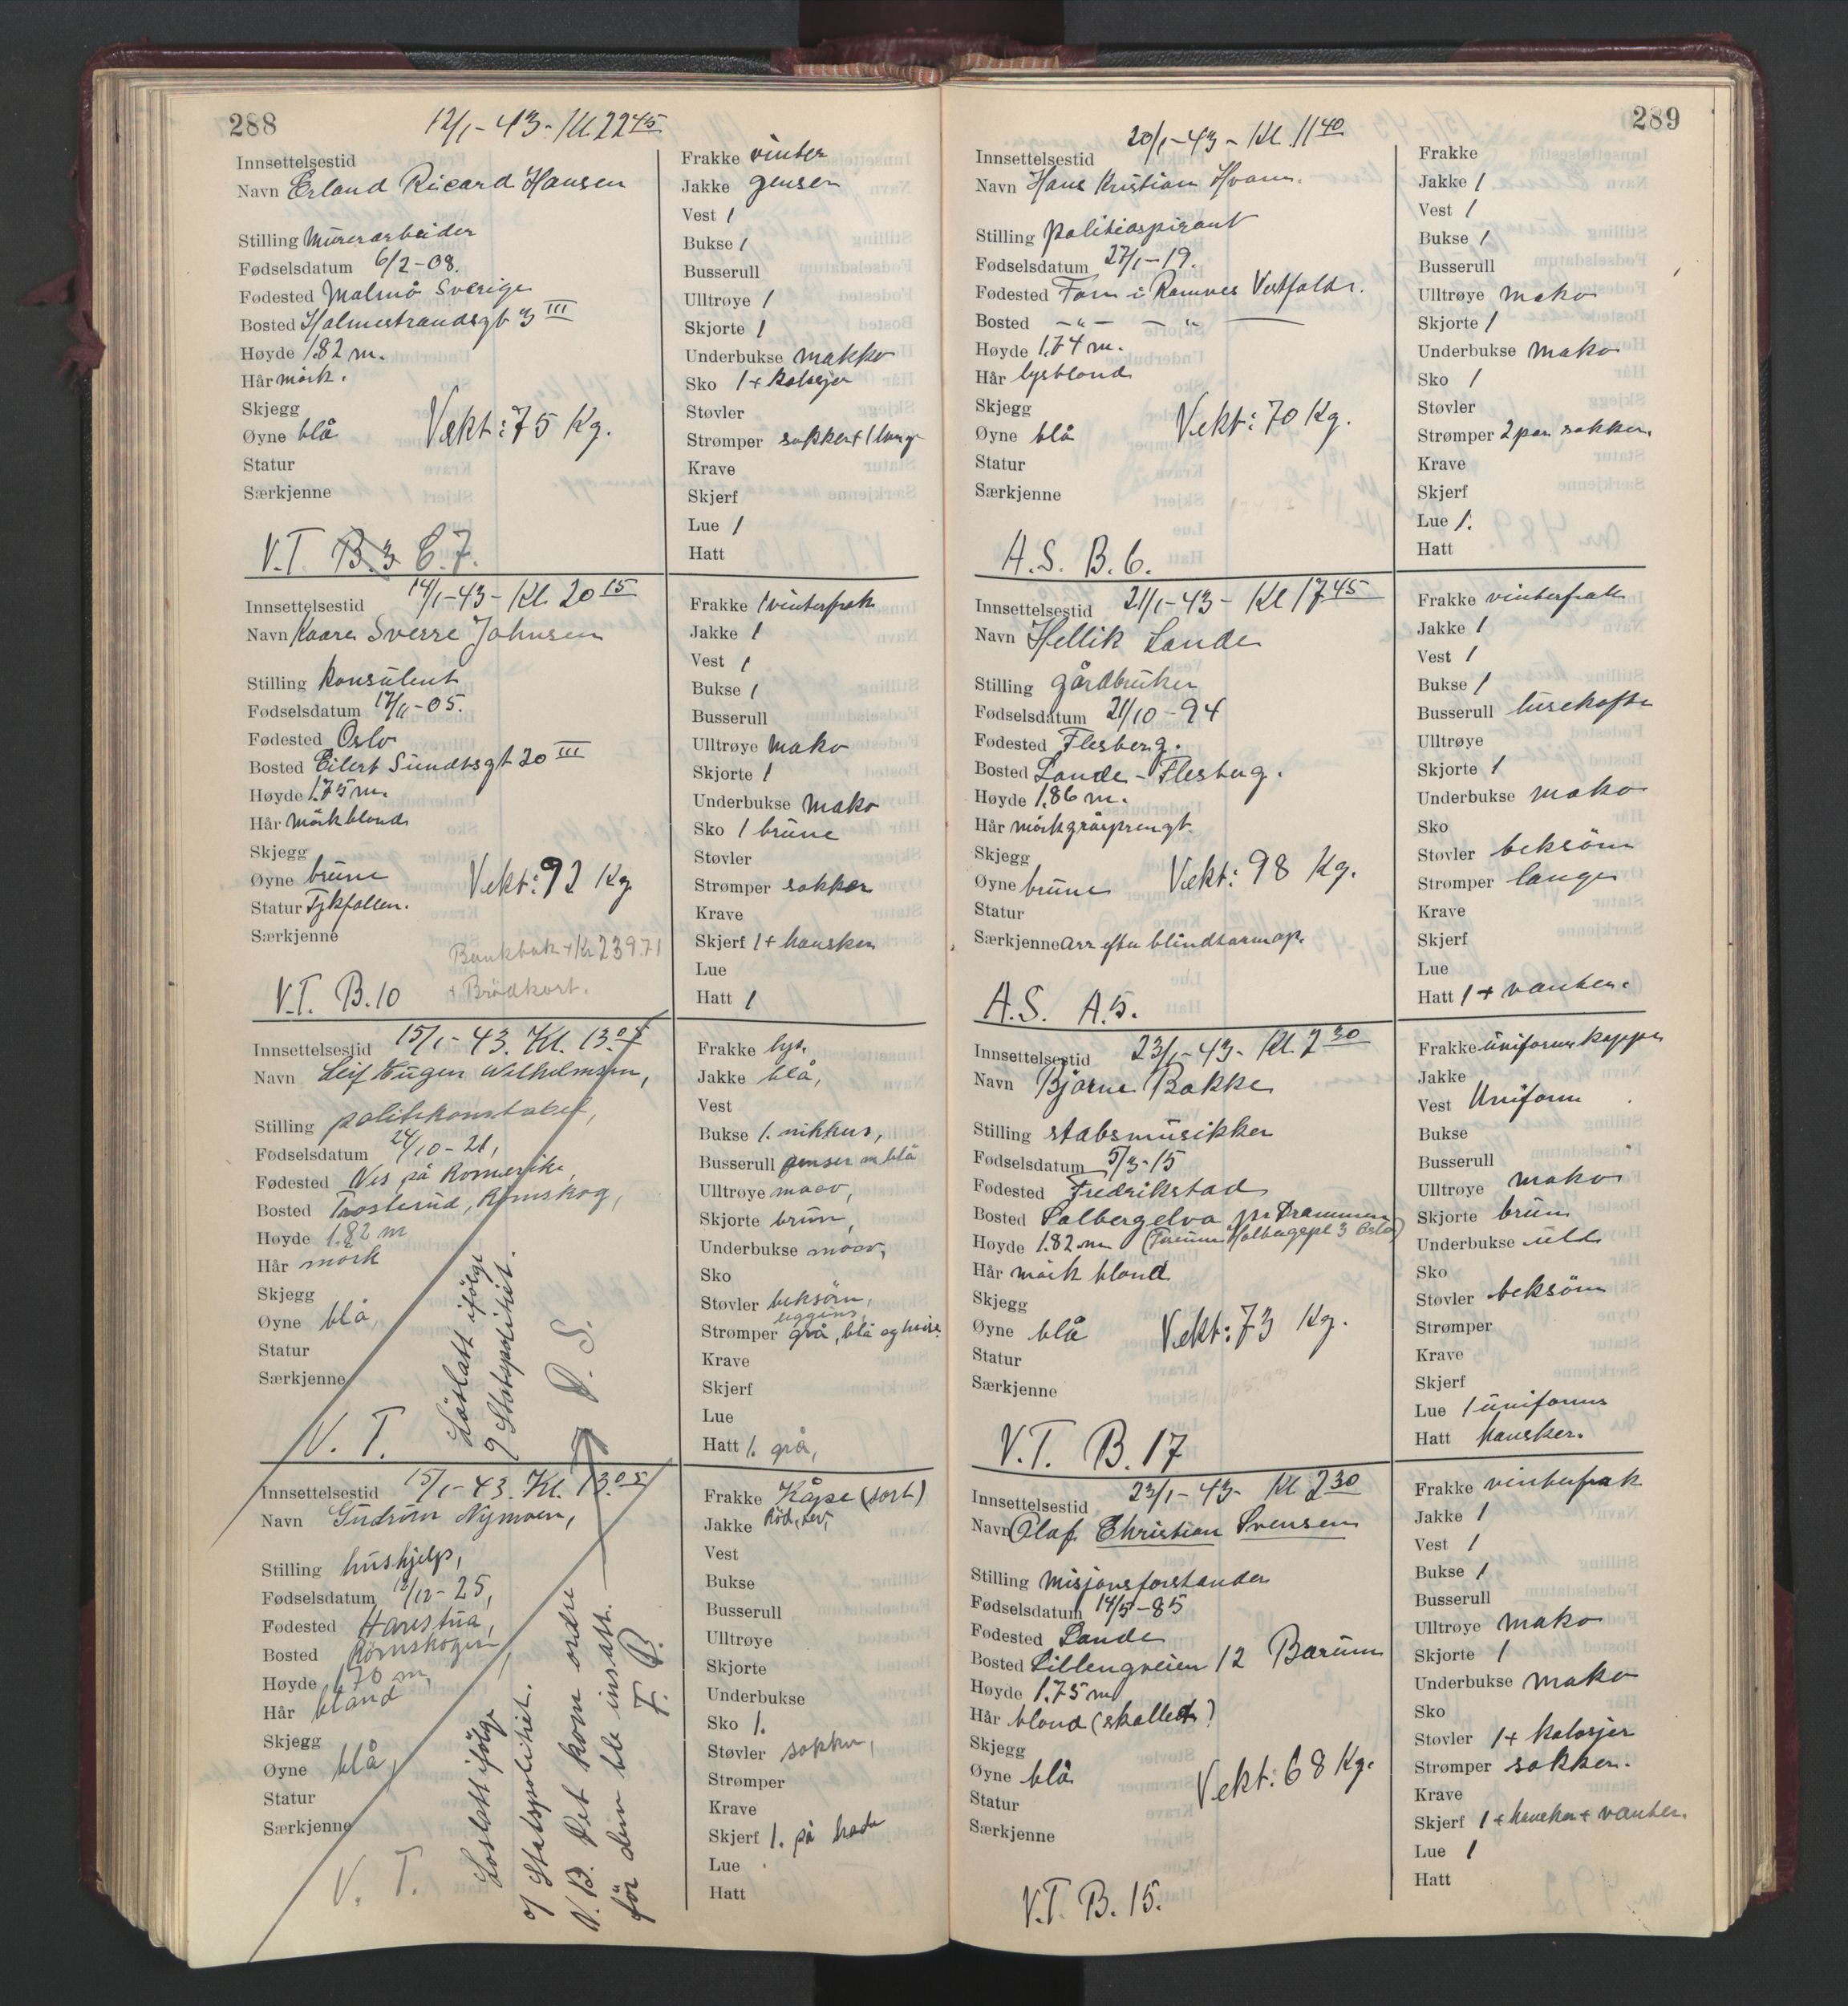 288
12/1-43- Kl. 22 45
Innsettelsestid
Navn Erland Ricard Hansen
Stilling Murerarbeider
Fødselsdatum 6/2-08.
Fødested Malmö Sverige
Bosted Holmestrandsgt 3 III
Høyde 1.82 m.
Hår mörk.
Skjegg
Øyne blå
Vekt: 75 Kg.
Statur
Særkjenne
V.T. B.3 C.7.
Frakke vinter
Jakke genser
Vest 1
Bukse 1
Busserull
Ulltrøye 1
Skjorte 1
Underbukse makko
Sko 1 + kalosjer
Støvler
Strømper sokker + 1 lange
Krave
Skjerf
Lue 1
Hatt
Innsettelsestid 14/1-43- Kl. 20 15
Navn Kaare Sverre Johnsen
Stilling konsulent
Fødselsdatum 17/11-05.
Fødested Oslo
Bosted Eilert Sundtsgt 20 III
Høyde 1.75 m.
Hår mörkblond
Skjegg
Øyne brune
Vekt: 92 Kg
Statur Tykfallen.
Særkjenne
Bankbok + Kr 239.71
+ Brödkort.
V.T. B.10
Frakke 1 vinterfrak
Jakke 1
Vest 1
Bukse 1
Busserull
Ulltrøye mako
Skjorte 1
Underbukse mako
Sko 1 brune
Støvler
Strømper sokker
Krave
Skjerf 1 + hansker
Lue
Hatt 1
Innsettelsestid 15/1-43. Kl. 13.05
Navn Leif Eugen Wilhelmsen,
Stilling politikonstabel,
Fødselsdatum 24/10-21,
Fødested Nes på Romerike,
Bosted Trosterud, Römskog,
Høyde 1.82 m
Hår mörk
Skjegg
Øyne blå,
Statur
Særkjenne
V. T.
Löslatt ifölge
of Statspolitiet.
D. S.
Frakke lys,
Jakke blå,
Vest
Bukse 1. nikkers,
Busserull genser m blå
Ulltrøye maco,
Skjorte brun,
Underbukse maco,
Sko
Støvler beksöm,
leggins,
Strømper grå, blå og hvite
Krave
Skjerf
Lue
Hatt 1. grå,
Innsettelsestid 15/1-43. Kl. 13.05
Navn Gudrun Nymoen,
Stilling hushjelp,
Fødselsdatum 12/12-25,
Fødested Harestua,
Bosted Römskogen
Høyde 1.70 m
Hår bland
Skjegg
Øyne blå,
Statur
Særkjenne
V. T.
Löslatt ifölge
of Statspolitiet.
N.B. Det kom ordre
för den ble insatt.
F. B.
Frakke Kåpe (sort)
Jakke Röd,
Vest
Bukse
Busserull
Ulltrøye
Skjorte
Underbukse
Sko 1.
Støvler sokker,
Strømper
Krave
Skjerf 1. på hode
Lue
Hatt
289
20/1-43- Kl. 11 40
Innsettelsestid
Navn Hans Kristian Hvam.
Stilling politiaspirant
Fødselsdatum 27/1-19.
Fødested Fom i Ramnes Vestfold.
Bosted -"- -"-
Høyde 1.74 m.
Hår lysblond
Skjegg
Øyne blå
Vekt: 70 Kg.
Statur
Særkjenne
A.S. B.6.
Frakke
Jakke 1
Vest 1
Bukse 1
Busserull
Ulltrøye mako
Skjorte 1
Underbukse mako
Sko 1
Støvler
Strømper 2 par sokker.
Krave
Skjerf
Lue 1.
Hatt
Innsettelsestid 21/1-43- Kl 17 45
Navn Hellik Lande
Stilling gårdbruker
Fødselsdatum 21/10-94
Fødested Flesberg.
Bosted Lande - Flesberg.
Høyde 1.86 m.
Hår mörkgråsprengt.
Skjegg
Øyne brune
Vekt: 98 Kg.
Statur
Særkjenne arr efter blindtarmop.
A.S. A.5.
Frakke vinterfrak
Jakke 1
Vest 1
Bukse 1
Busserull lusekofte
Ulltrøye
Skjorte 1
Underbukse mako
Sko
Støvler beksöm
Strømper lange
Krave
Skjerf
Lue
Hatt 1 + vanter.
Innsettelsestid 23/1-43- Kl. 2 30
Navn Bjarne Bakke
Stilling stabsmusikker
Fødselsdatum 5/3-15
Fødested Fredrikstad
Bosted Solbergelva pr Drammen
Høyde 1.82 m (Forum Holbergspl 3 Oslo)
Hår mörk blond
Skjegg
Øyne blå
Vekt: 73 Kg.
Statur
Særkjenne
V.T. B.17
Frakke uniformskappe
Jakke
Vest Uniform
Bukse
Busserull
Ulltrøye mako
Skjorte brun
Underbukse ull
Sko
Støvler beksöm
Strømper
Krave
Skjerf
Lue 1 uniforms
Hatt hansker.
Innsettelsestid 23/1-43- Kl 2 30
Navn Olaf Christian Svensen
Stilling Misjonsforstander
Fødselsdatum 14/5-85
Fødested Sande
Bosted Lillengveien 12 Bærum
Høyde 1.75 m
Hår blond (skallet)
Skjegg
Øyne blå
Vekt: 68 Kg.
Statur
Særkjenne
V.T. B.15.
Frakke vinterfrak
Jakke 1
Vest 1
Bukse 1
Busserull
Ulltrøye mako
Skjorte 1
Underbukse mako
Sko
Støvler 1 + kalosjer
Strømper sokker.
Krave
Skjerf 1 + hansker + vanter.
Lue 1
Hatt